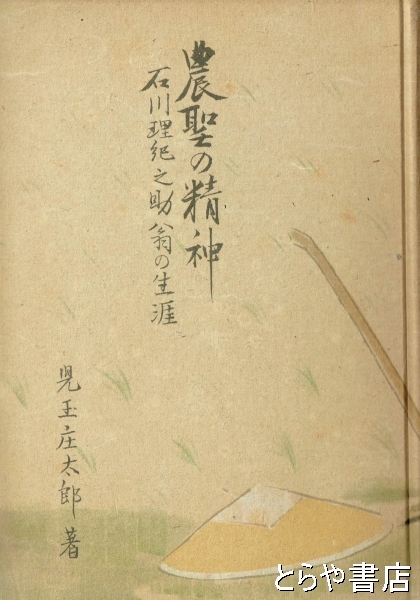 農聖の精神
石川理紀之助翁の生涯
児玉庄太郎 著
とらや書店